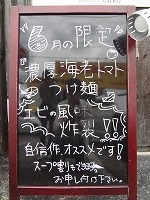 6月の限定
濃厚海老トマト
つけ麺
エビの風味
炸裂!!
自信作、オススメです!
スープ割りもできます。
お申し付け下さい。